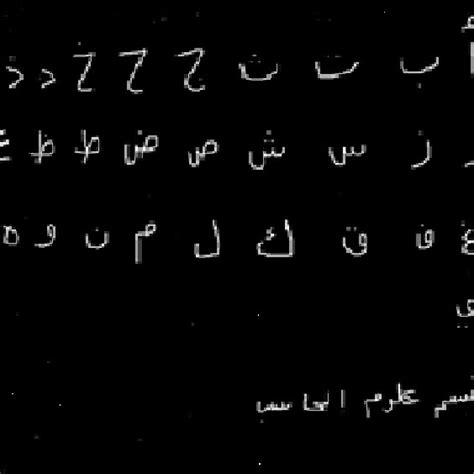 أ ب ت ث ج ح خ د ذ
ر ز س ش ص ض ط ظ ع
غ ف ق ك ل م ن و ه
ي
قسم علوم الحاسب